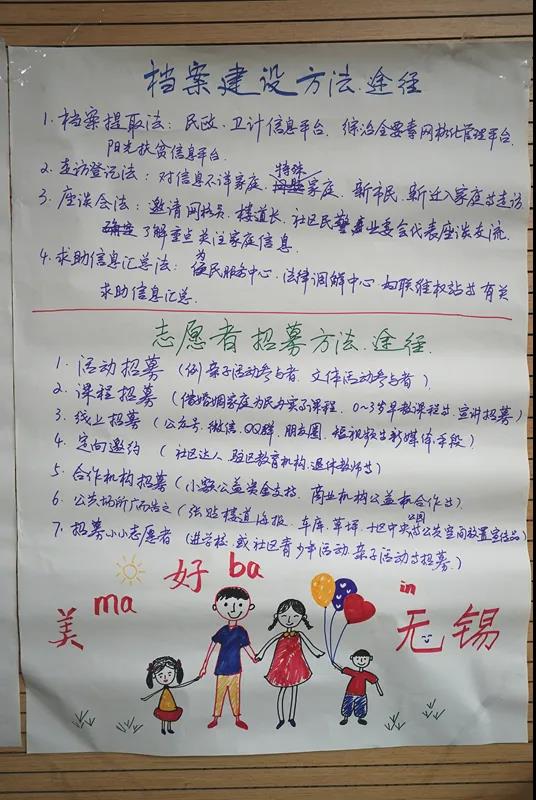 档案建设方法.途径
1. 档案提取法：民政、卫计信息平台、综治全要素网格化管理平台、
阳光扶贫信息平台.
2. 走访登记法：对信息不详家庭、特殊家庭、新市民、新迁入家庭等走访
3. 座谈会法：邀请网格员、楼道长、社区民警、业委会代表座谈交流、
了解重点关注家庭信息.
4. 求助信息汇总法：为民服务中心、法律调解中心、妇联维权站等有关
求助信息汇总.
志愿者招募方法.途径.
1. 活动招募（例亲子活动参与者、文体活动参与者）.
2. 课程招募（借婚姻家庭为民办实事课程、0～3岁早教课程等宣讲招募）
3. 线上招募（公众号、微信、QQ群、朋友圈、短视频等新媒体手段）
4. 定向邀约（社区达人、驻区教育机构、退休教师等）
5. 合作机构招募（小额公益资金支持、商业机构公益合作等）.
6. 公共场所广而告之（张贴楼道海报、车库、草坪、社区中央公园等公共空间放置宣传品）
7. 招募小小志愿者（进学校、或社区青少年活动、亲子活动等招募.）
美 ma 好 ba in 无锡